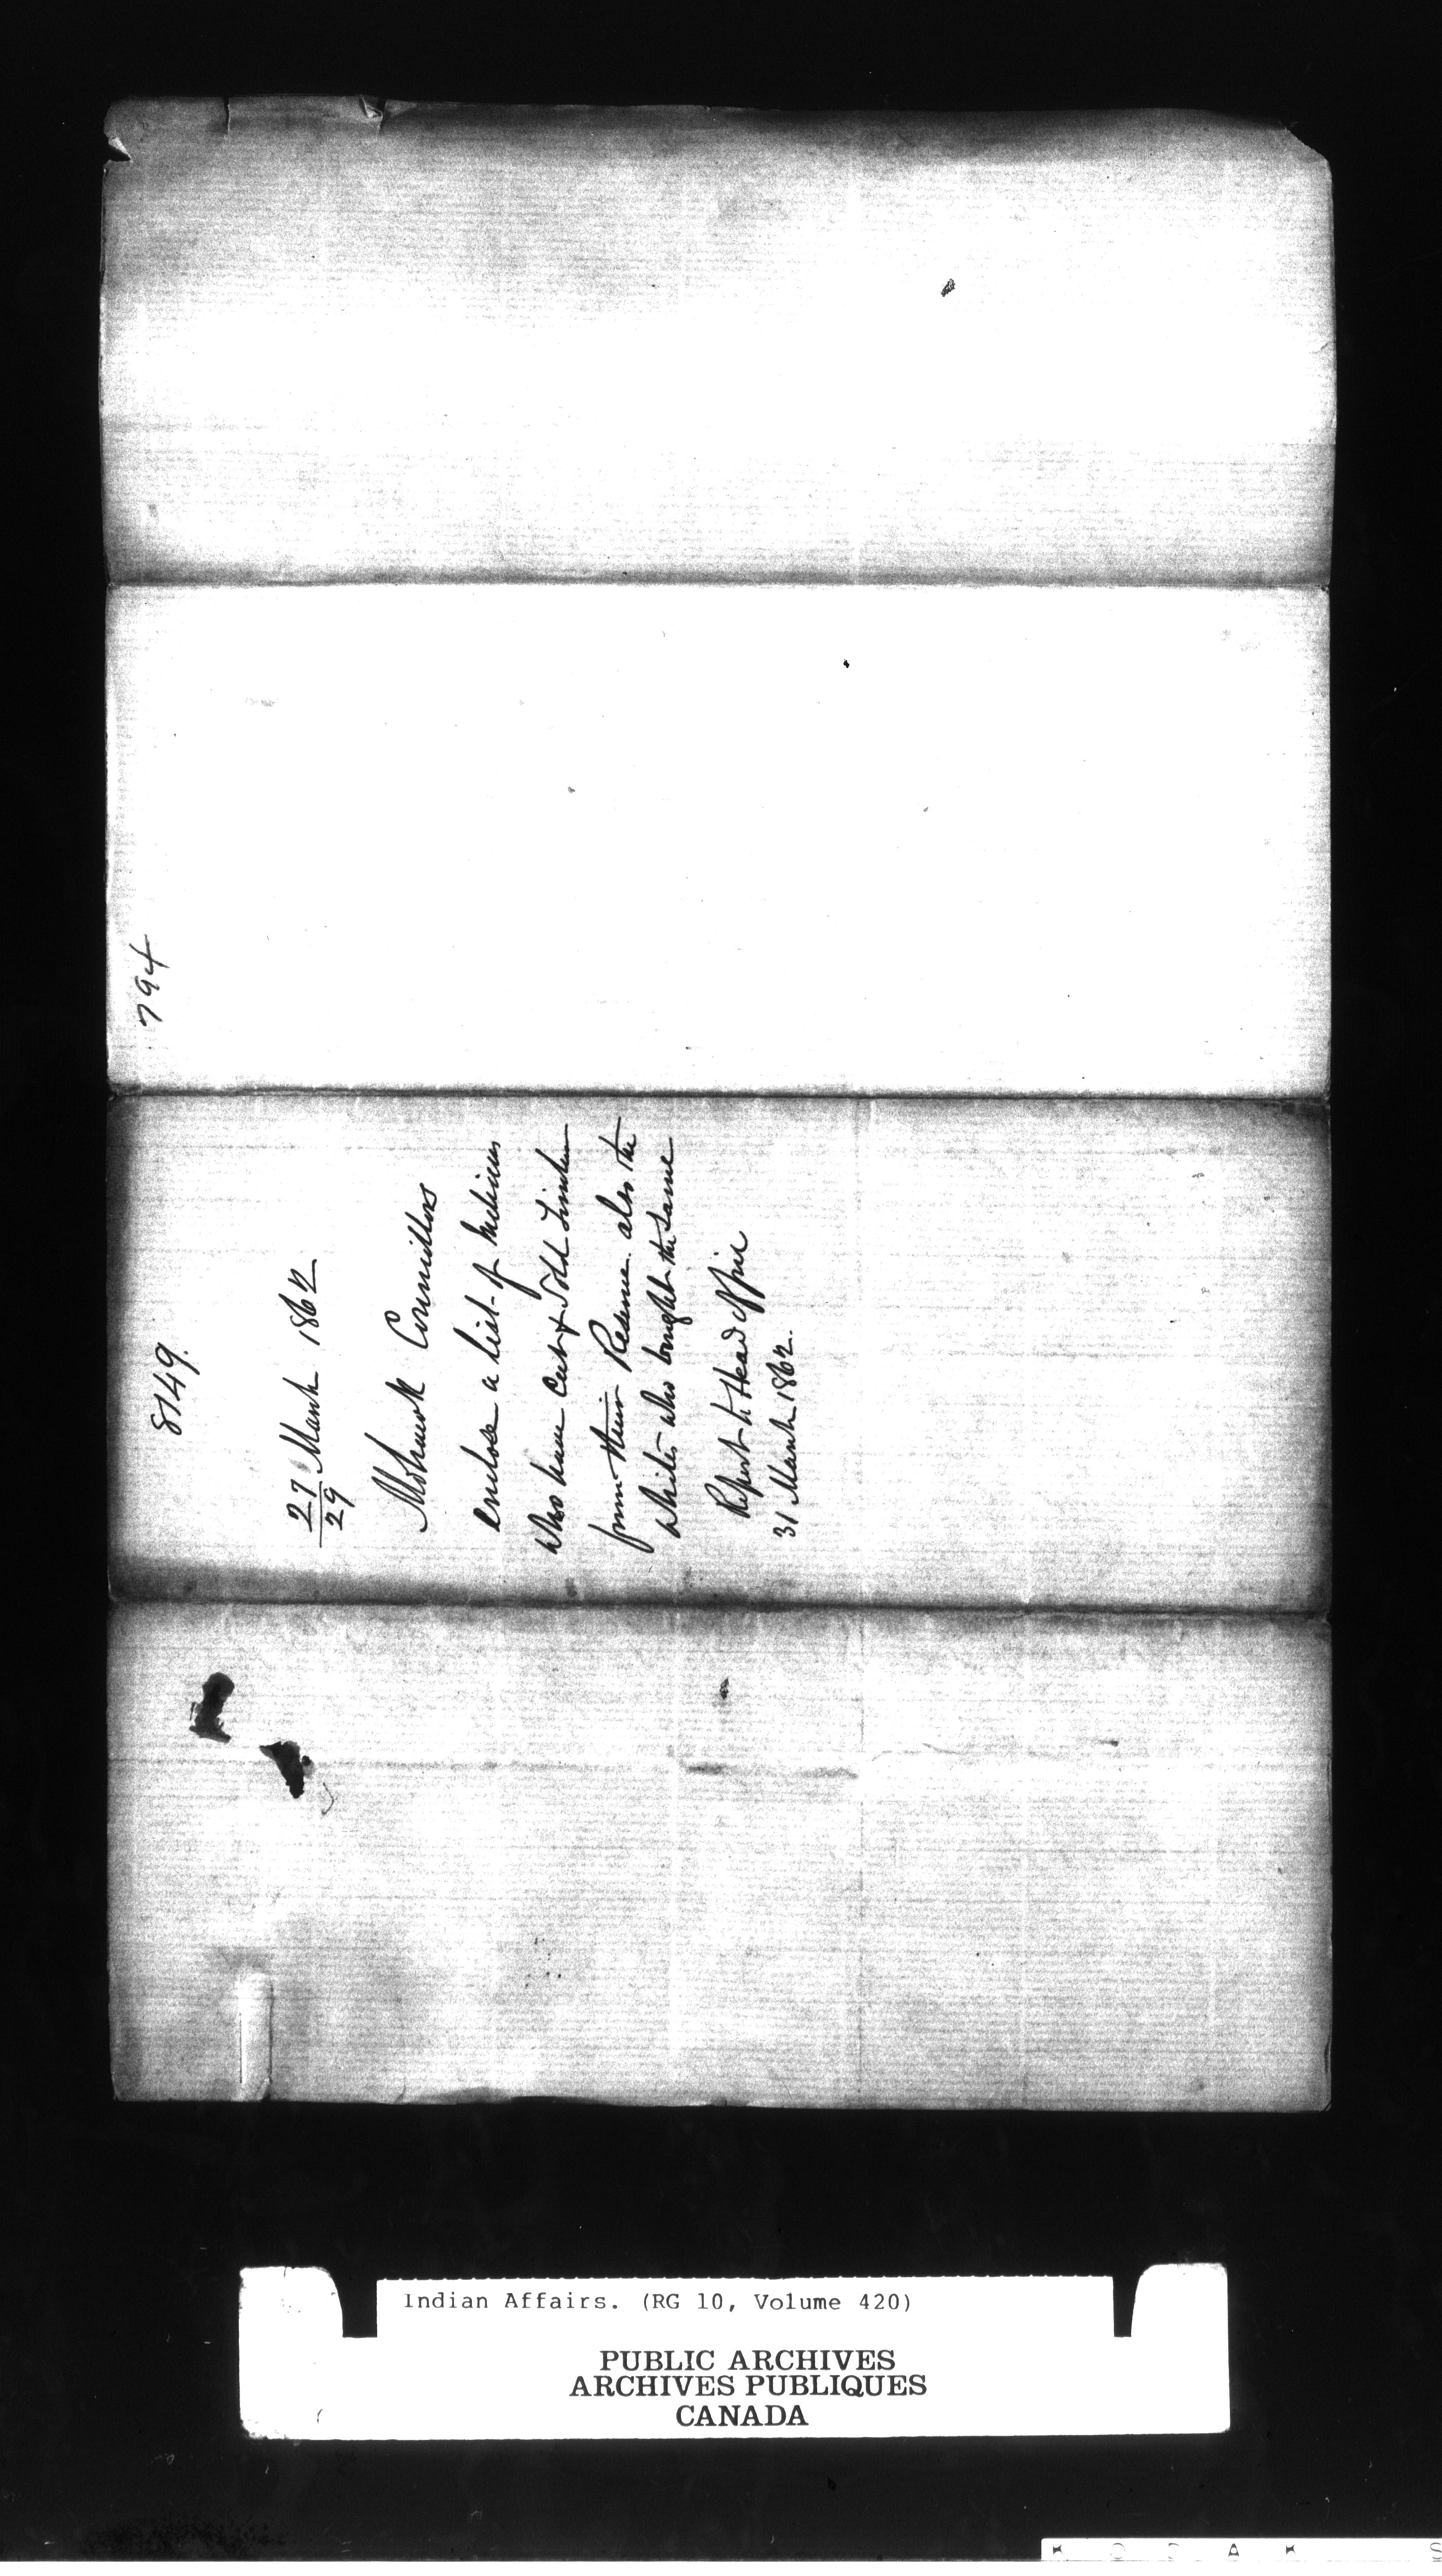 794
8149.
27 March 1862
29
Mohawk Councillors
enclose a list of Indians
who have cut & sold timber
from their Reserve also the
whites who bought the same
Report to Head Office
31 March 1862.
Indian Affairs. (RG 10, Volume 420)
PUBLIC ARCHIVES
ARCHIVES PUBLIQUES
CANADA